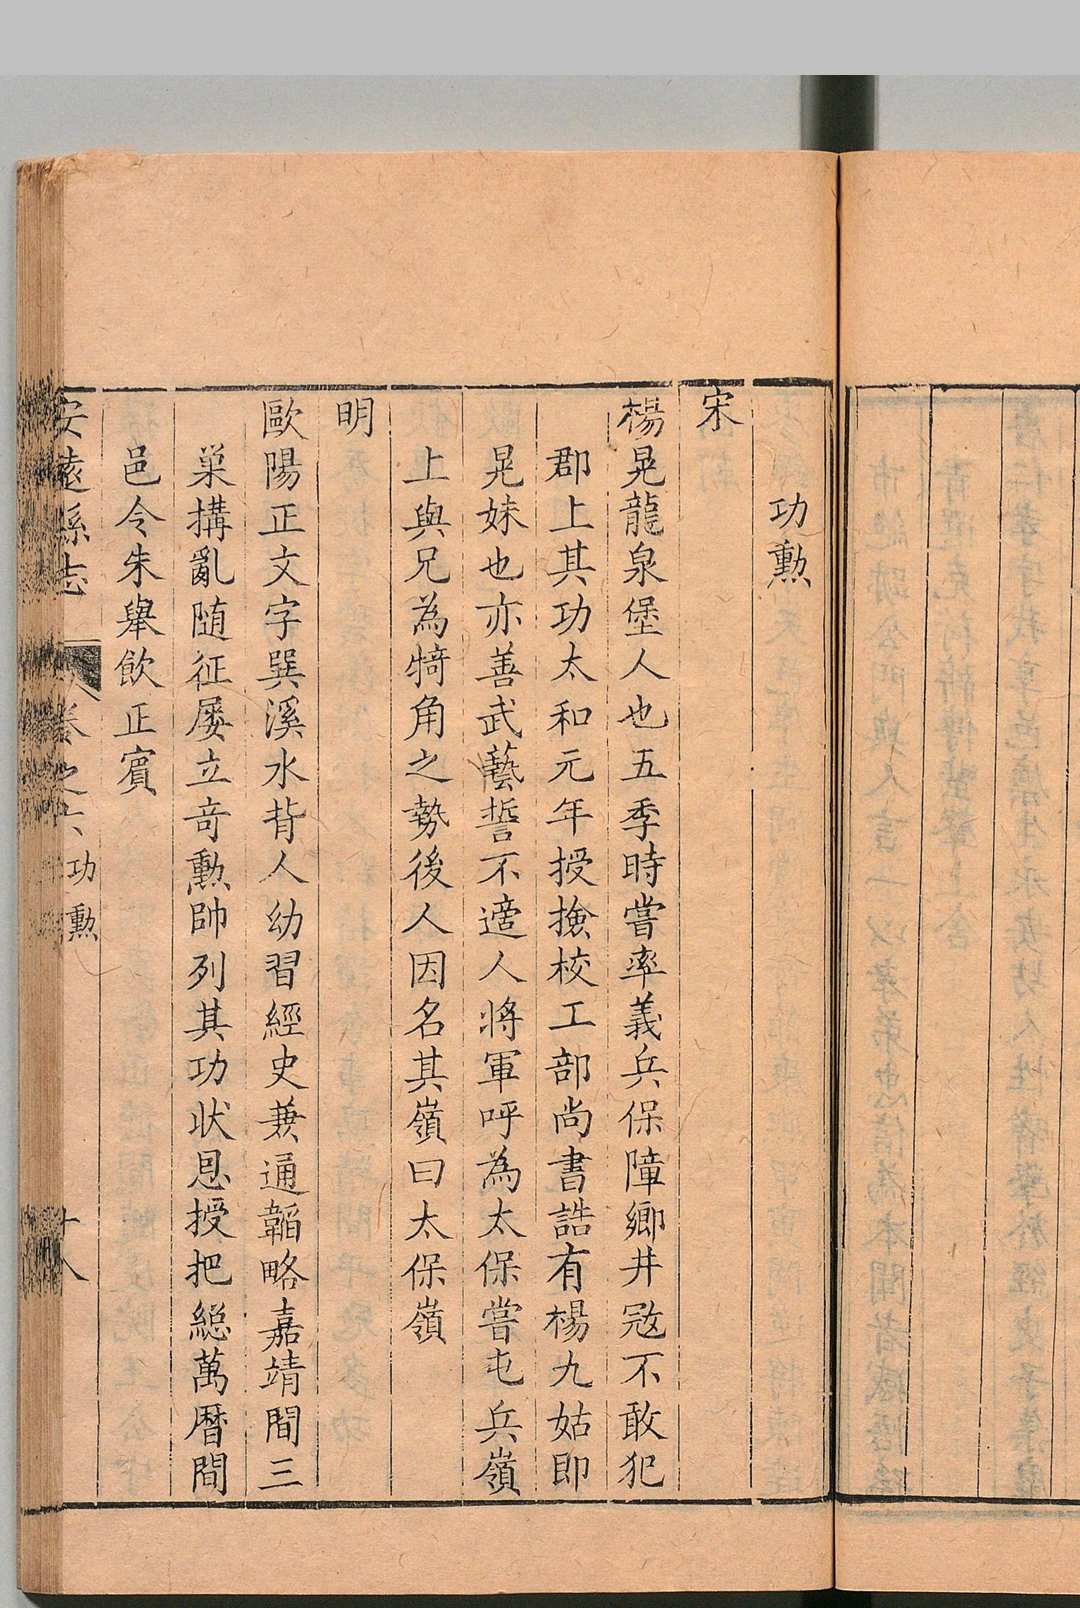 功勲
宋
楊晃龍泉堡人也五季時嘗率義兵保障鄉井冦不敢犯
郡上其功太和元年授撿校工部尚書誥有楊九姑即
晃妹也亦善武藝誓不適人將軍呼為太保嘗屯兵嶺
上與兄為犄角之勢後人因名其嶺曰太保嶺
明
歐陽正文字巽溪水背人幼習經史兼通韜略嘉靖間三
巢搆亂随征屡立竒勲帥列其功状恩授把緫萬曆間
邑令朱舉飲正賓
安遠縣志
卷之六 功勲
十八